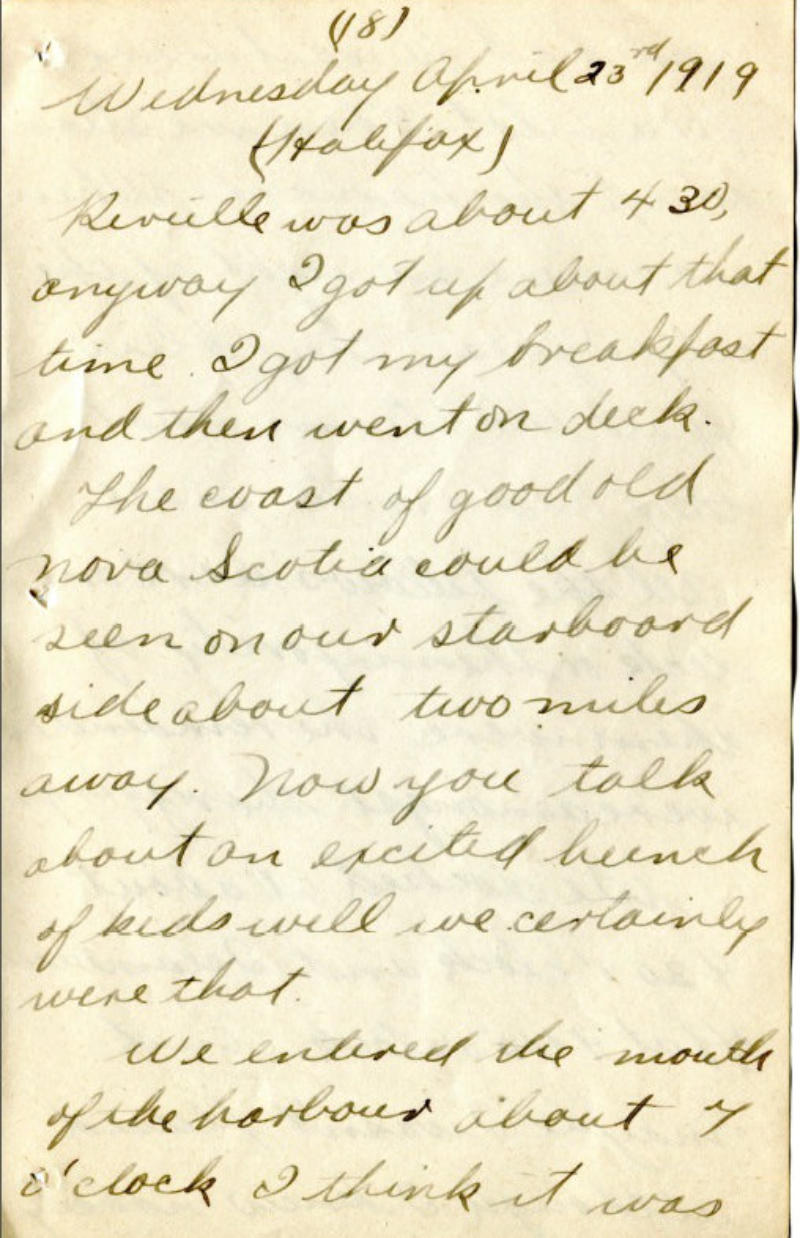 (18)
Wednesday April 23rd 1919
(Halifax)
Reveille was about 4 30,
anyway I got up about that
time. I got my breakfast
and then went on deck.
The coast of good old
Nova Scotia could be
seen on our starboard
side about two miles
away. Now you talk
about an excited bunch
of kids well we certainly
were that.
We entered the mouth
of the harbour about 7
o'clock I think it was